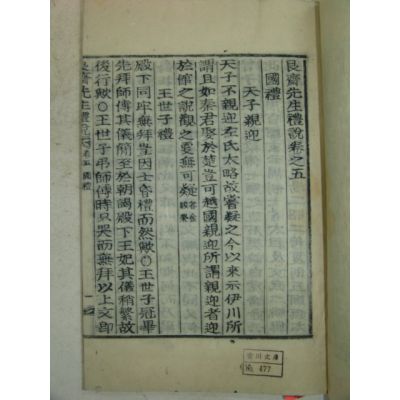 艮齋先生禮說卷之五
國禮
天子親迎
天子不親迎左氏大略故嘗疑之今以來示伊川所
謂且如秦君娶於楚豈可越國親迎所謂親迎者迎
於館之說觀之更無可疑
王世子禮
殿下同牢無拜豈因士昏禮而然歟○王世子冠畢
先拜師傅其儀簡至於朝謁殿下王妃其儀稍繁故
後行歟○王世子弔師傅時只哭而無拜以上文卽
艮齋先生禮說 卷五 國禮
一
古川文庫
№ 477